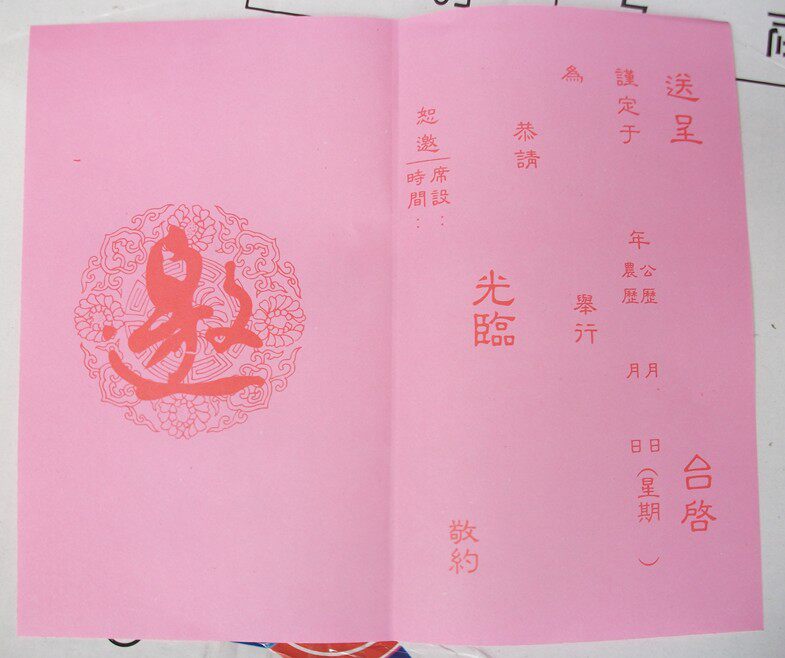 送呈　台啓
謹定于　年　公歷　月　日
農歷　月　日（星期　）
為　舉行
恭請
光臨
敬約
恕邀
席設：
時間：
邀